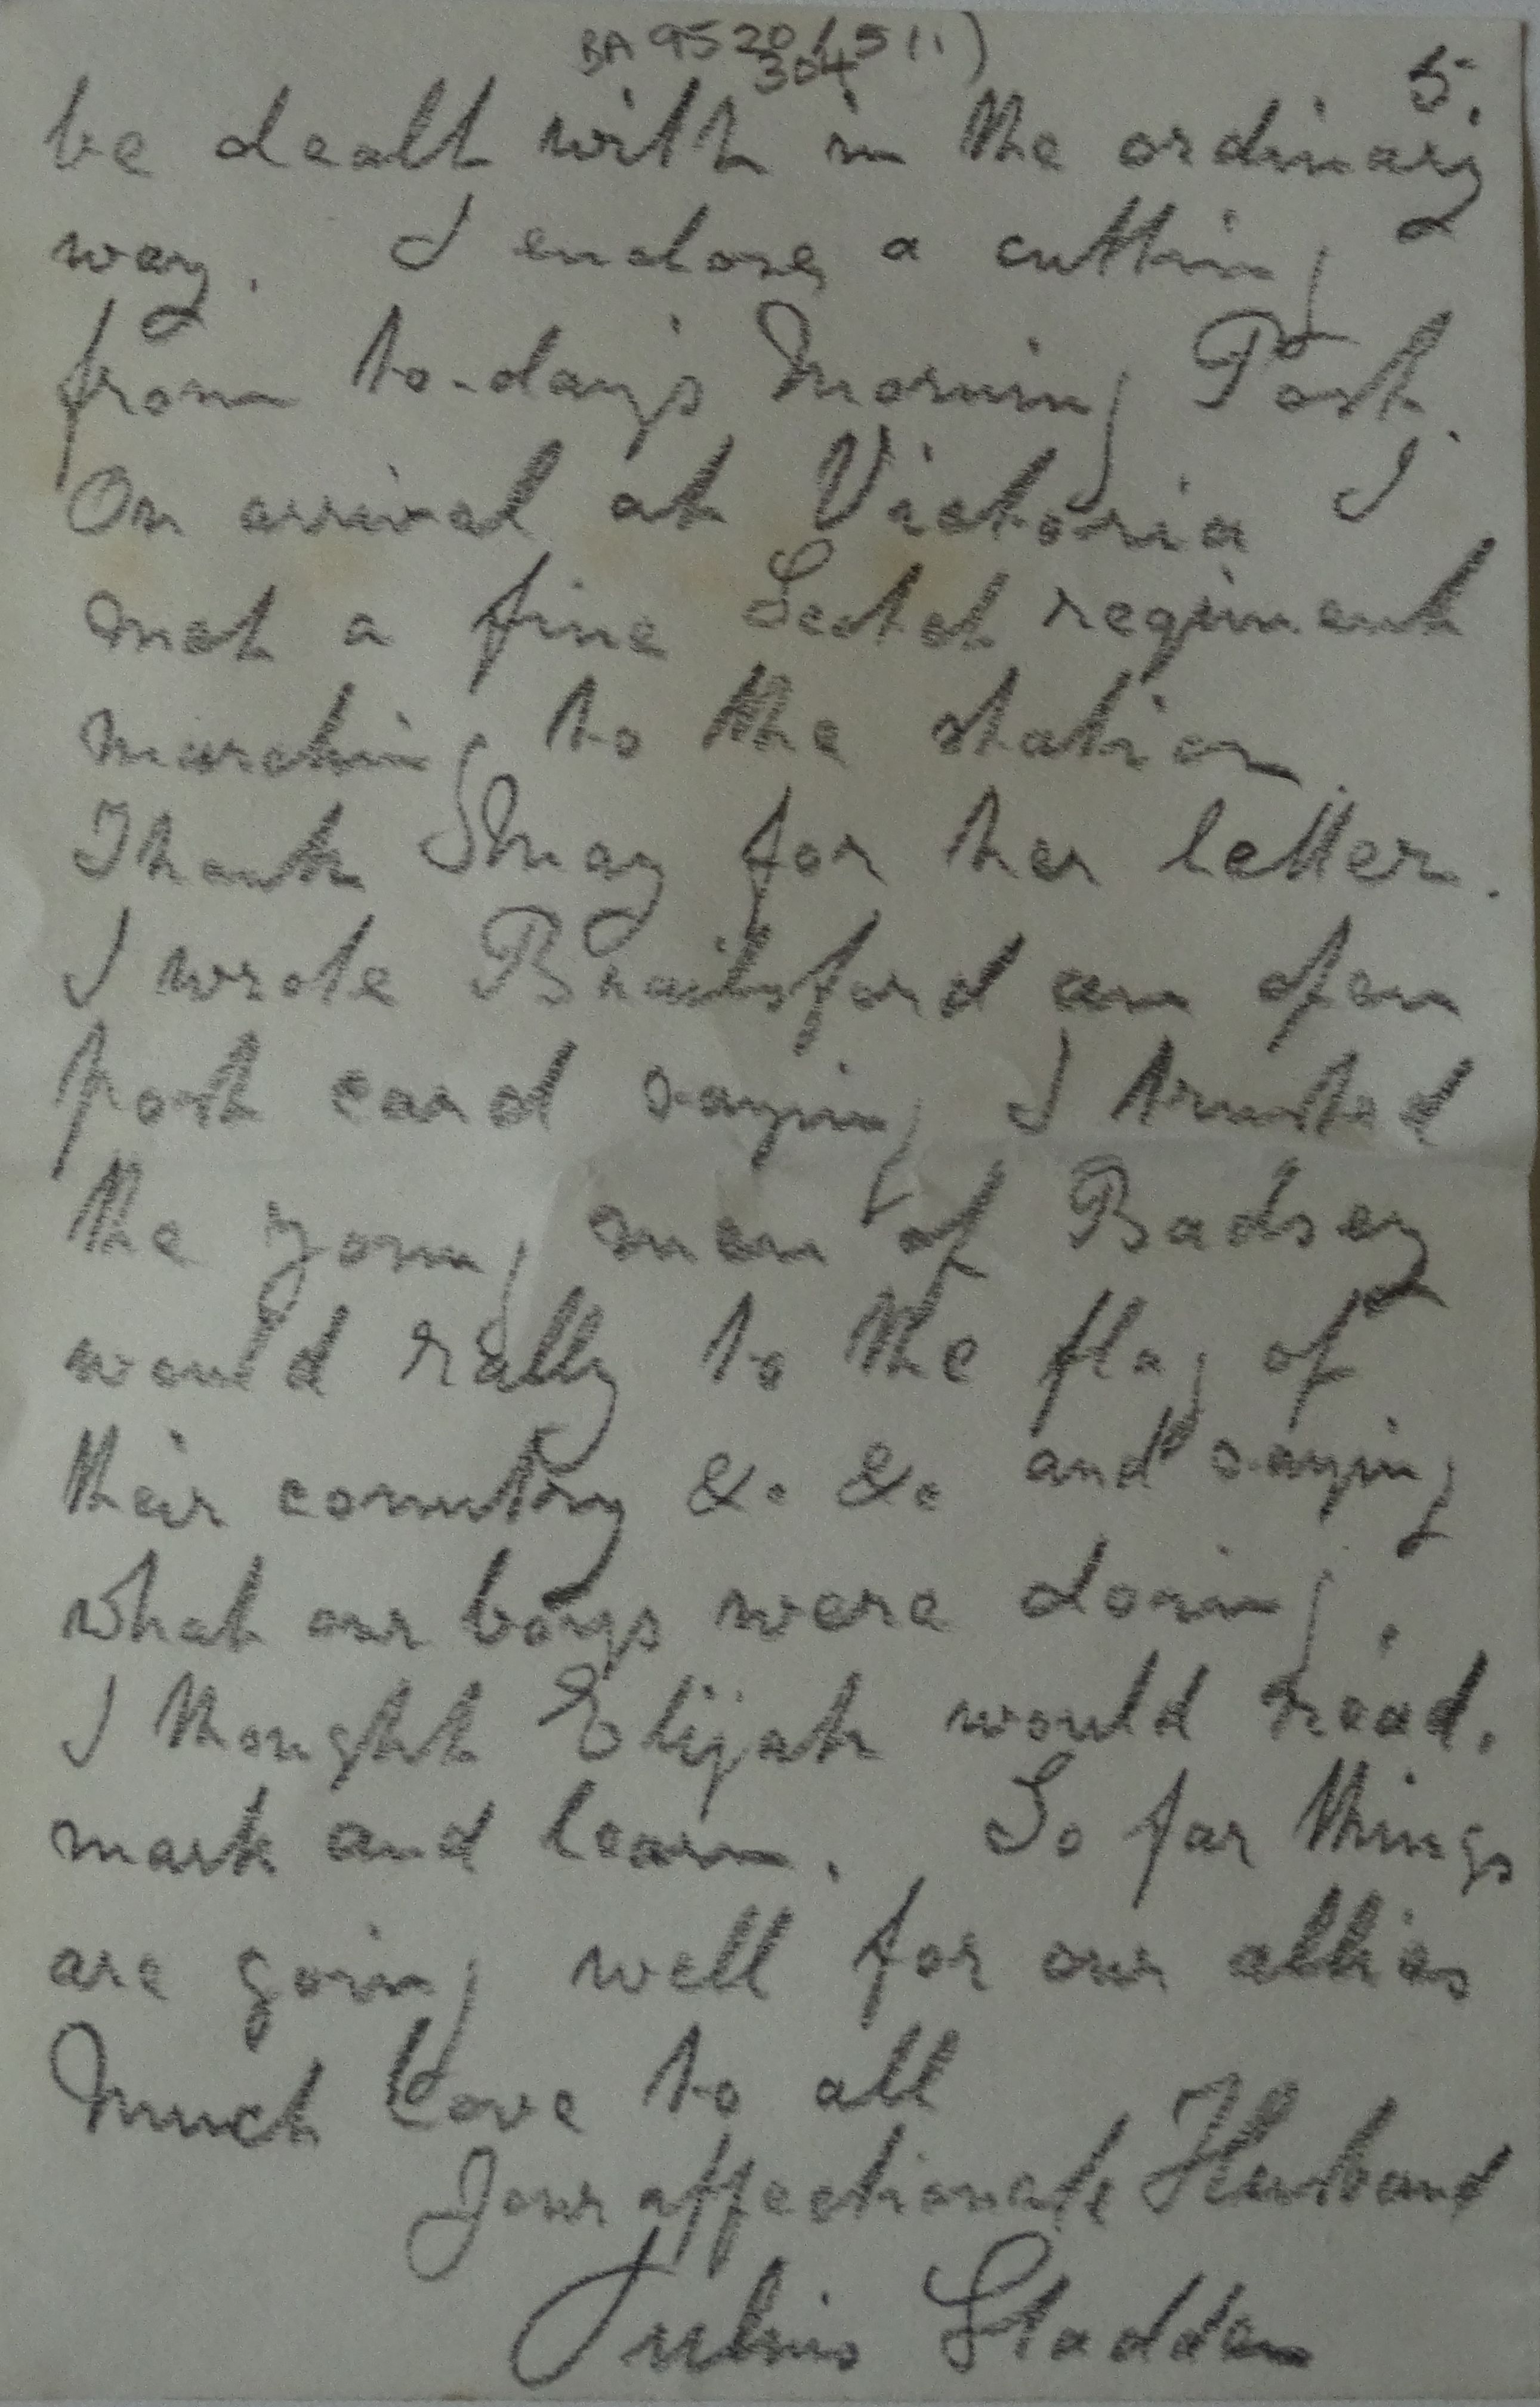 BA 9520/5(ii)
304
5.
be dealt with in the ordinary
way. I enclose a cutting
from to-day's Morning Post.
On arrival at Victoria I
met a fine Scotch regiment
marching to the station.
Thank May for her letter.
I wrote Brailsford an open
post card saying I trusted
the young men of Badsey
would rally to the flag of
their country &. &. and saying
what our boys were doing.
I thought Elijah would read,
mark and learn. So far things
are going well for our allies
Much Love to all
Your affectionate Husband
Julius Sladden